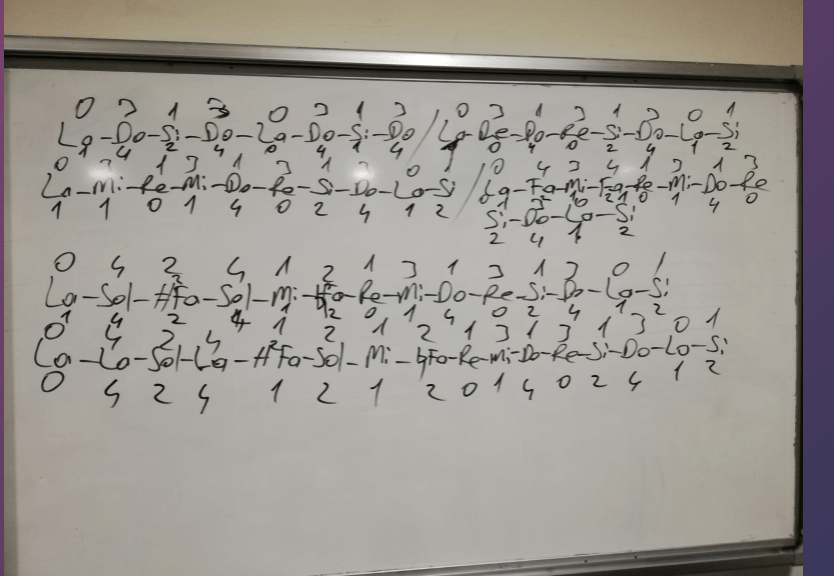 0 3 1 3 0 3 1 3 0 3 1 3 1 3 0 1
La-Do-Si-Do-La-Do-Si-Do/La-Re-Do-Re-Si-Do-La-Si
1 4 2 4 0 4 1 4 4 0 2 4 1 2
0 3 1 3 1 3 1 3 0 1 0 4 3 4 1 3 1 3
La-Mi-Re-Mi-Do-Re-Si-Do-La-Si/La-Fa-Mi-Fa-Re-Mi-Do-Re
1 1 0 1 4 0 2 4 1 2 2 1 2 0 1 4 0
1 3 0 1
Si-Do-La-Si
2 4 1 2
0 4 2 4 1 2 1 3 1 3 1 3 0 1
La-Sol-#Fa-Sol-Mi-#Fa-Re-Mi-Do-Re-Si-Do-La-Si
1 4 2 4 1 2 0 1 4 0 2 4 1 2
0 4 2 4 2 2 1 2 1 3 1 3 1 3 0 1
La-La-Sol-La-#Fa-Sol-Mi-♮Fa-Re-Mi-Do-Re-Si-Do-La-Si
0 4 2 4 1 2 1 2 0 1 4 0 2 4 1 2